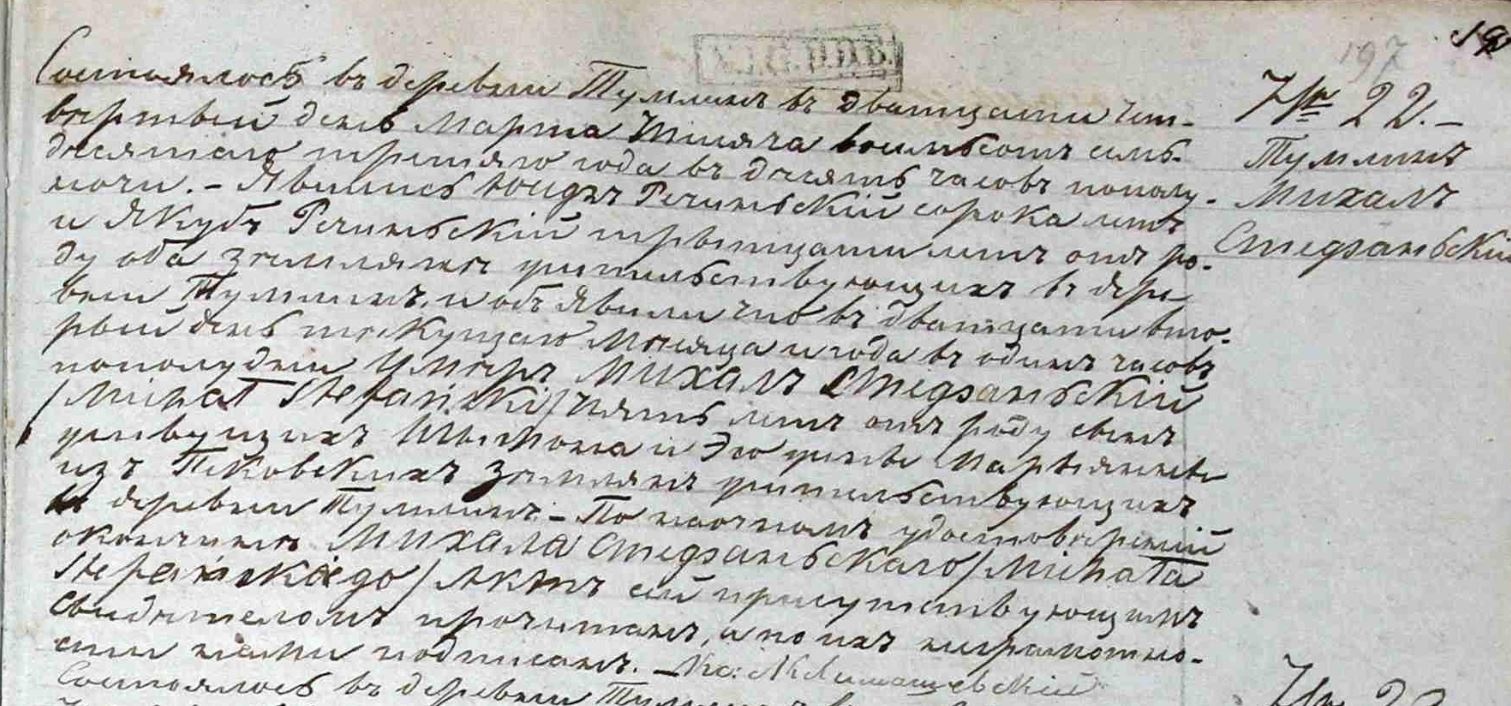 197 19
Состоялось въ деревни Тумлинъ въ дватцати чет-
вертый день Марта Тысяча восемьсотъ семь-
десятаго третяго года въ десять часовъ пополу-
ночи. – Явились Речинскій сорока летъ
и Якубъ Речинскій тритцати летъ отъ ро-
ду оба земляне жительствующихъ въ дере
вни Тумлинъ, и объявили что въ дватцати вто-
рый день текущаго месяца и года въ одинъ часовъ
пополудни Умеръ Михалъ Стефаньскій
/Michał Stefański/ пять летъ отъ роду сынъ
живущихъ и Эго жены Марыянны
изъ земляне жительствующихъ
въ деревни Тумлинъ. – По наочномъ удостоверений
окончине Михала Стефаньскаго /Michała
Stefańskago/ Актъ сей присутствующимъ
свидетеломъ прочитанъ, а по ихъ неграмотно-
сти нами подписанъ. –
Состоялось въ деревни
№ 22. –
Тумлинъ
Михалъ
Стефаньскій